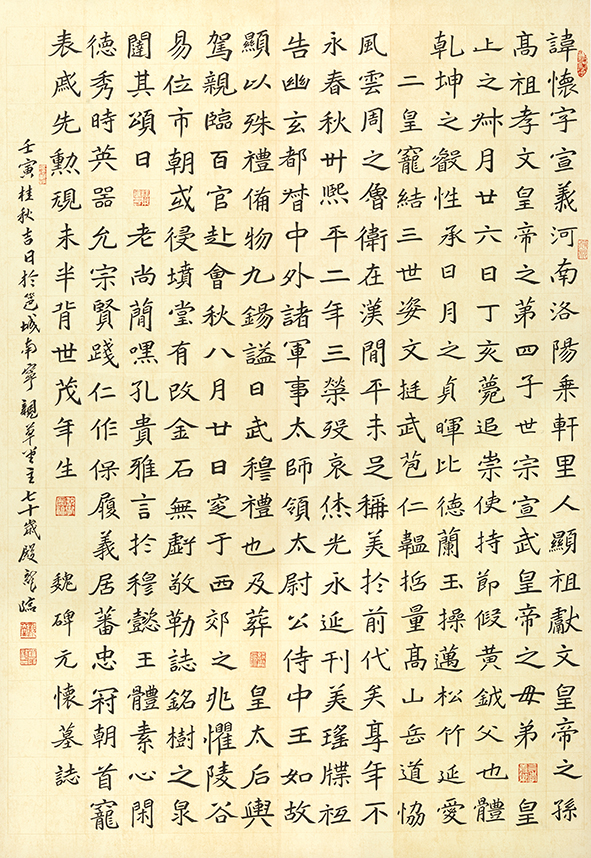 諱懷字宣義河南洛陽乘軒里人顯祖獻文皇帝之孫
高祖孝文皇帝之第四子世宗宣武皇帝之母弟 皇
上之月廿六日丁亥薨追崇使持節假黃鉞父也體
乹坤之叡性承日月之貞暉比德蘭玉操邁松竹延愛
二皇寵結三世姿文挺武苞仁韞括量高山岳道協
風雲周之魯衛在漢間平未足稱美於前代矣享年不
永春秋卅熙平二年三榮歿哀光永延刊美瑤牒祗
告幽玄都督中外諸軍事太師領太尉公侍中王如故
顯以殊禮備物九錫謚曰武穆禮也及葬 皇太后輿
駕親臨百官赴會秋八月廿日窆于西郊之兆懼陵谷
易位市朝或侵墳堂有改金石無虧敬勒誌銘樹之泉
闥其頌曰 老尚簡嘿孔貴雅言於穆懿王體素心閑
德秀時英器允宗賢踐仁作保履義居蕃忠冠朝首寵
表戚先勳規未半背世茂年生 魏碑元懷墓誌
壬寅桂秋吉日於邕城南寧親草堂主七十歲殷臨